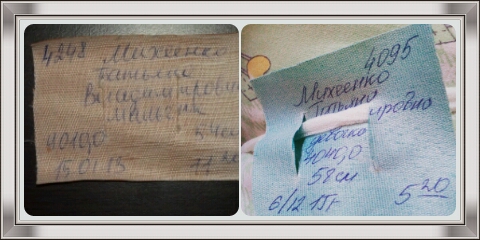 4248 Михеенко
Татьяна
Владимировна
мальчик
4010,0 54см
15.01.15 11
4095
Михеенко
Татьяна
ировна
девочка
4040,0
58 см
6/12.15г 5 20